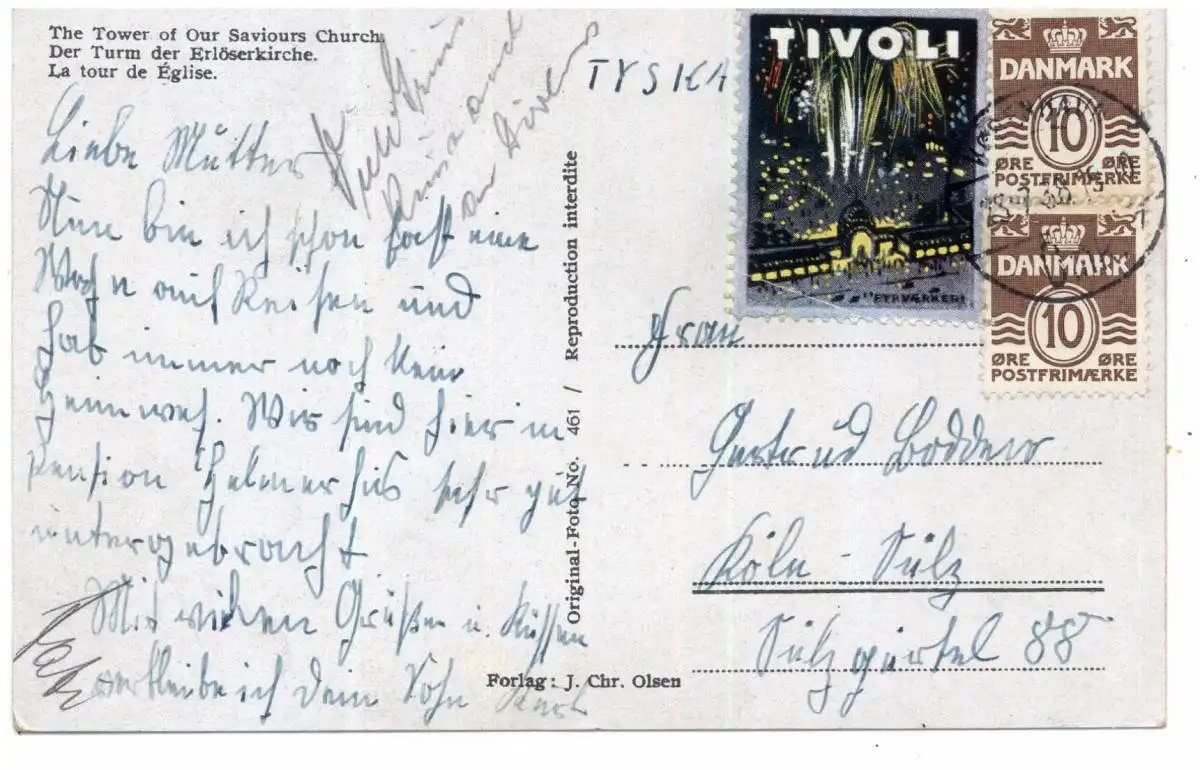 The Tower of Our Saviours Church.
Der Turm der Erlöserkirche.
La tour de Église.
Liebe Mutter
Nun bin ich schon fast eine
Woche auf Reisen und
hab immer noch kein
Heimweh. Wir sind hier in
Pension Helmerhus sehr gut
untergebracht
Mit vielen Grüßen u. Küssen
verbleibe ich Dein Sohn
Viele Grüße
auch
an
Original-Foto No. 461 / Reproduction interdite
Forlag: J. Chr. Olsen
TYSKA
TIVOLI
FYRVÆRKERI
DANMARK
10
ØRE ØRE
POSTFRIMÆRKE
DANMARK
10
ØRE ØRE
POSTFRIMÆRKE
Frau
Gertrud Boddem
Köln-Sülz
Sülzgürtel 88